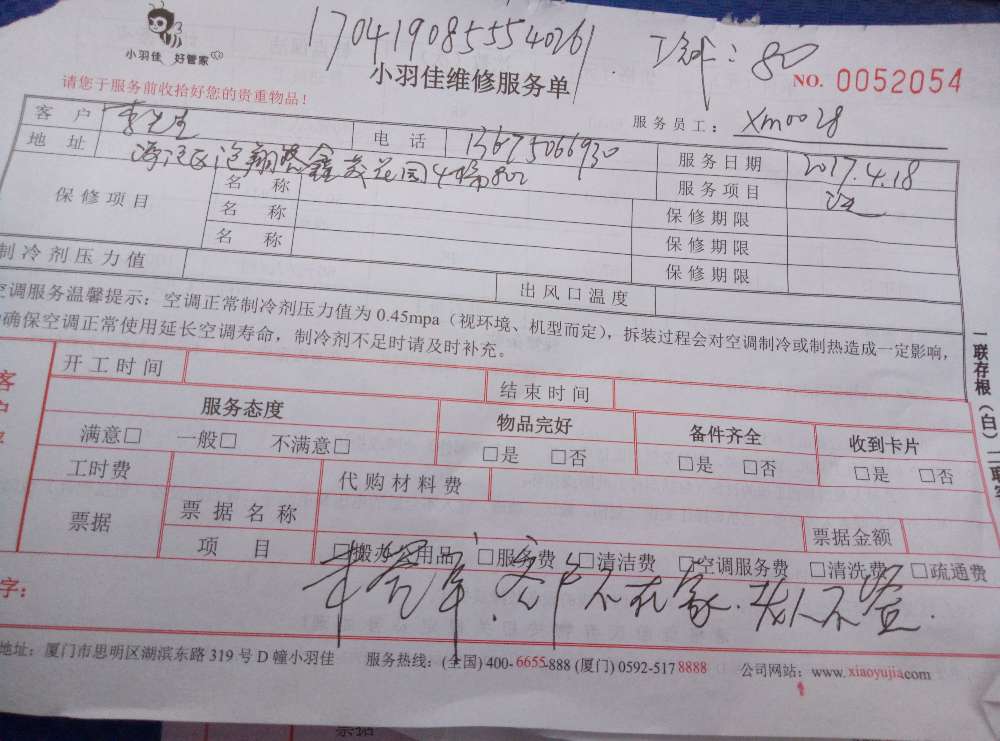 1704190855540261 : 80
小羽佳 好管家
小羽佳维修服务单 NO. 0052054
请您于服务前收拾好您的贵重物品！ 服务员工： Xm0028
客户 李先生 电话 13675066930 服务日期 2017.4.18
地址 海沧区沧翔路鑫 花园4 802 服务项目
保修项目 名称 保修期限
名称 保修期限
名称 保修期限
制冷剂压力值 出风口温度
空调服务温馨提示：空调正常制冷剂压力值为 0.45mpa（视环境、机型而定），拆装过程会对空调制冷或制热造成一定影响，
确保空调正常使用延长空调寿命，制冷剂不足时请及时补充。
开工时间 结束时间
服务态度 物品完好 备件齐全 收到卡片
满意□ 一般□ 不满意□ □是 □否 □是 □否 □是 □否
工时费 代购材料费
票据 票据名称 票据金额
项目 □搬办公用品 □服务费 □清洁费 □空调服务费 □清洗费 □疏通费
字： 客户不在家.
地址：厦门市思明区湖滨东路 319 号 D 幢小羽佳 服务热线：(全国) 400-6655-888 (厦门) 0592-517 8888 公司网站：www.xiaoyujia.com
一联存根（白）二联客
客户
票据